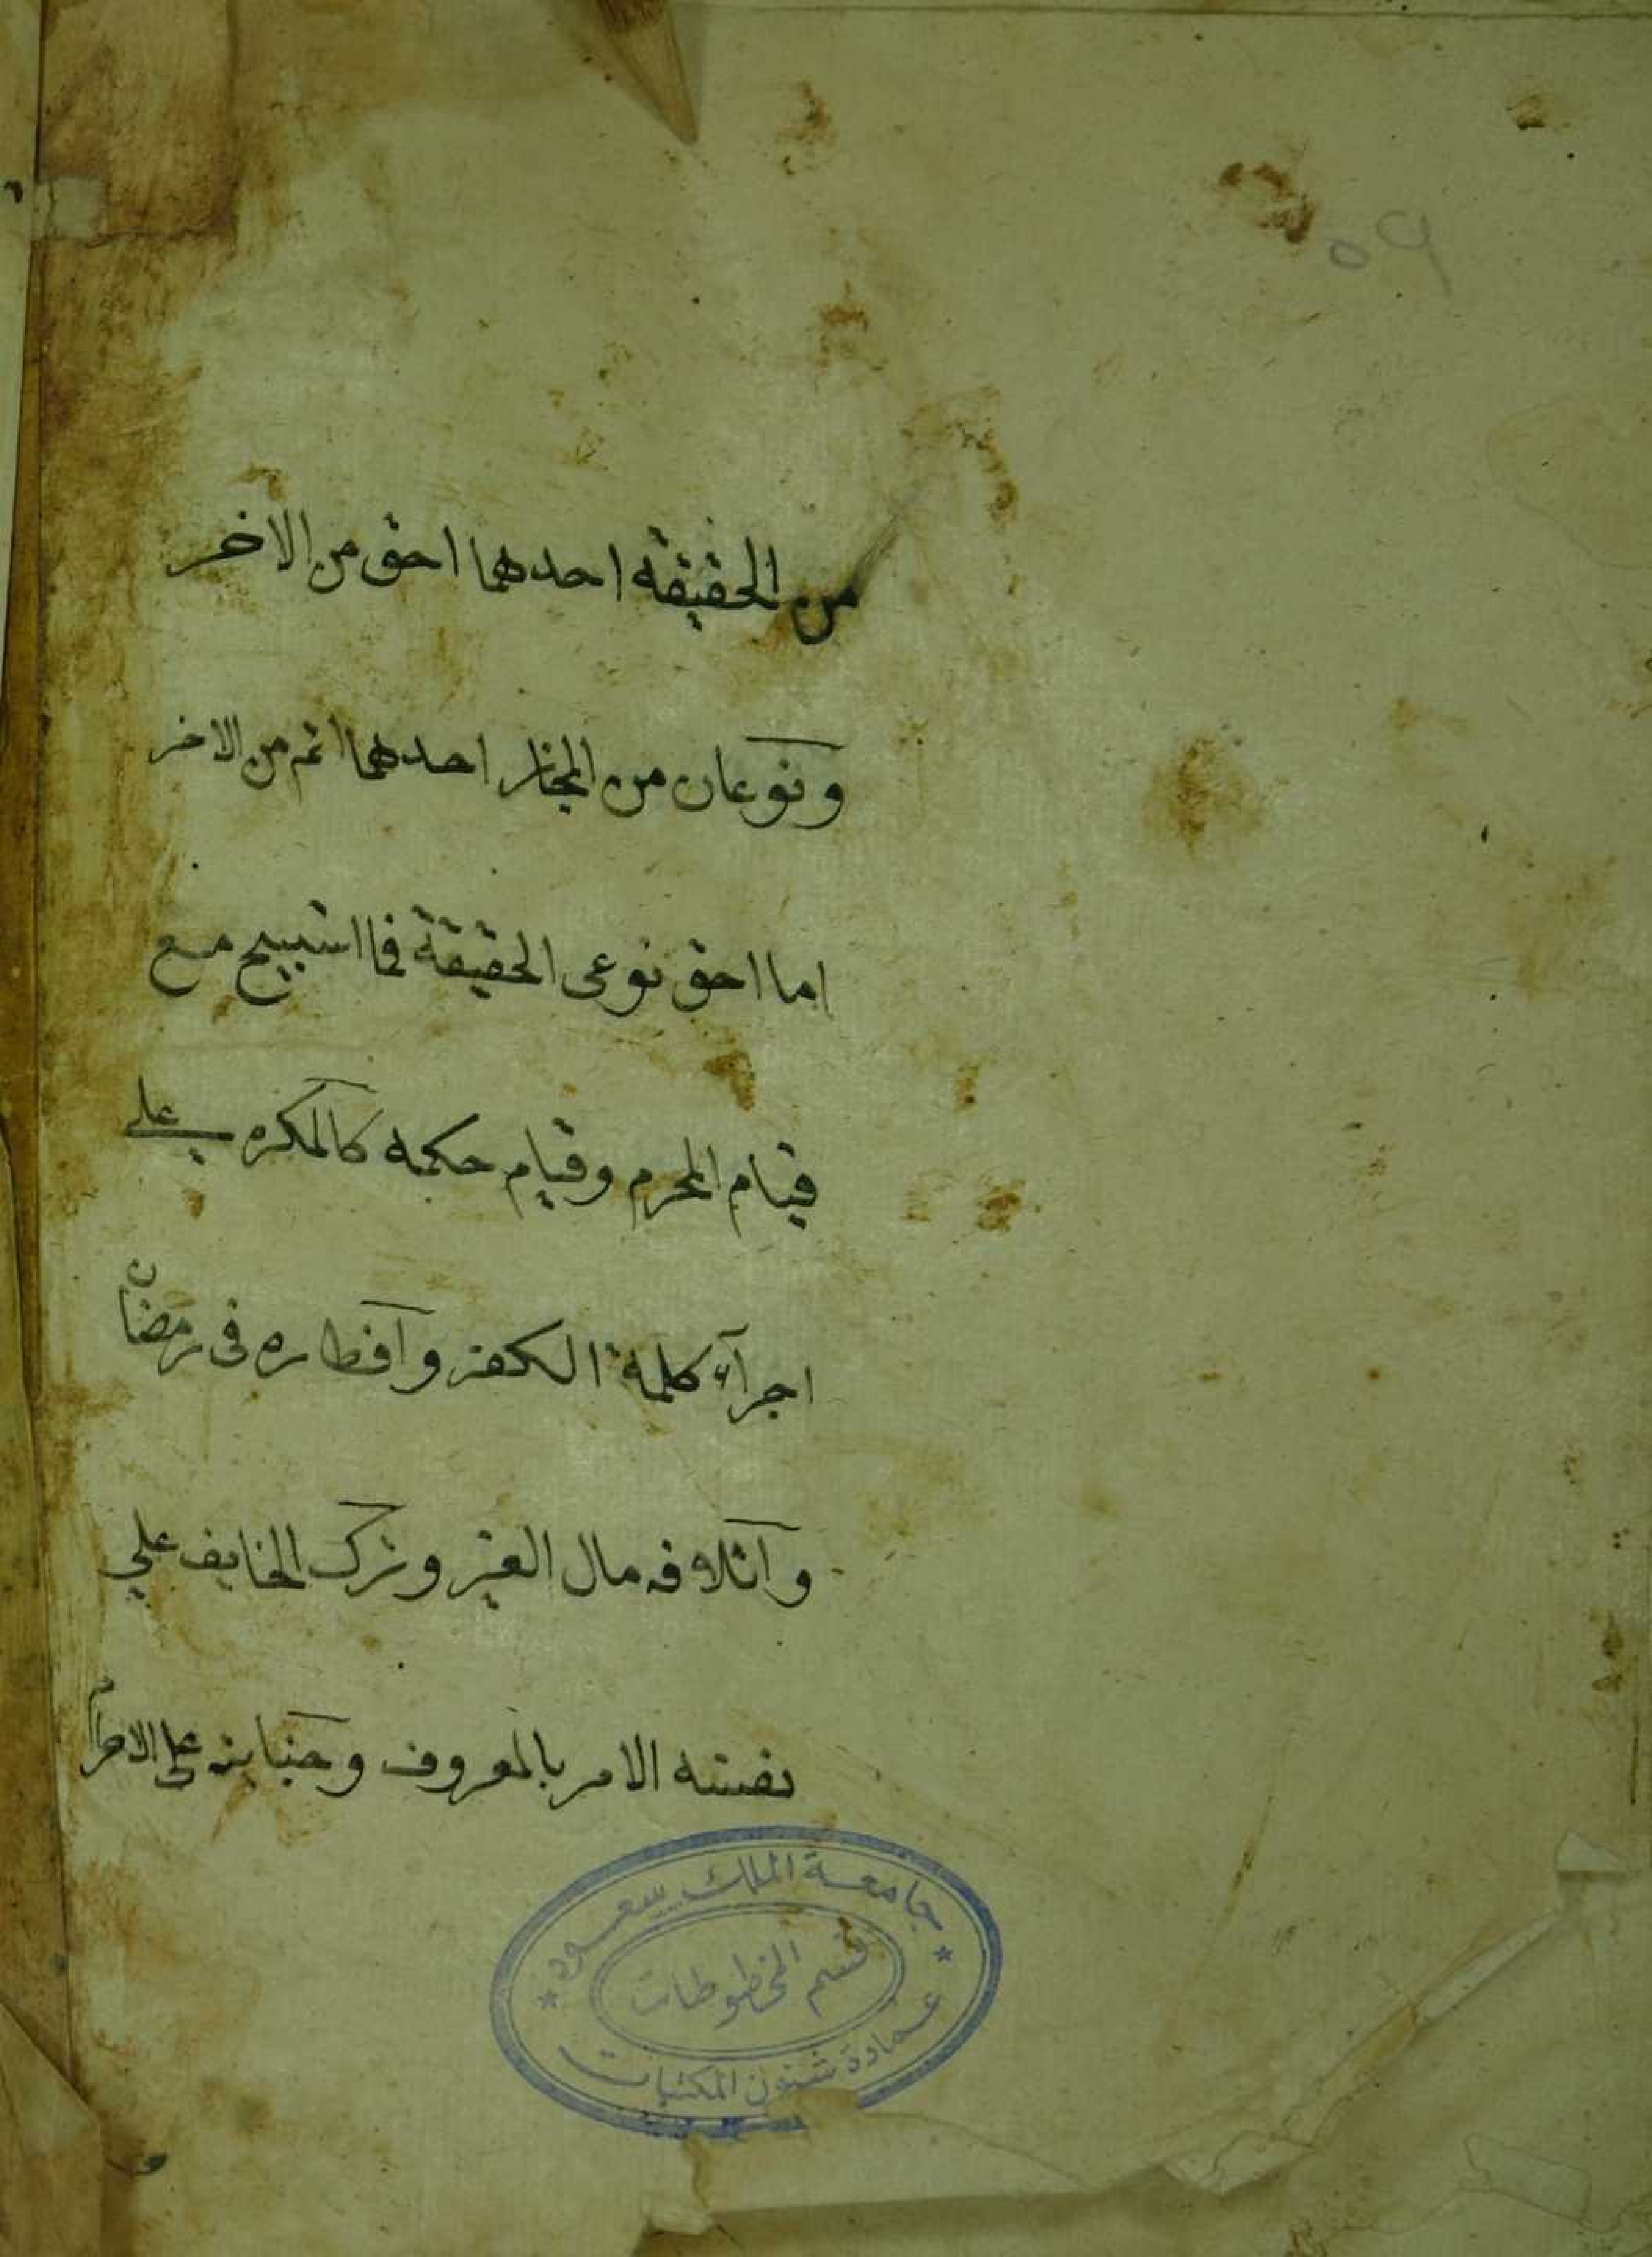 ٥٩
من الحقيقة احدهما احق من الاخر
ونوعان من المجاز احدهما اتم من الاخر
اما احق نوعى الحقيقة فما استبيح مع
قيام المحرم وقيام حكمه كالمكره على
اجرآء كلمة الكفر وافطاره فى رمضان
واتلافه مال الغير وترك الخايف على
نفسه الامر بالمعروف وجنايته على الاحرام
جامعة الملك سعود
قسم المخطوطات
عمادة شئون المكتبات